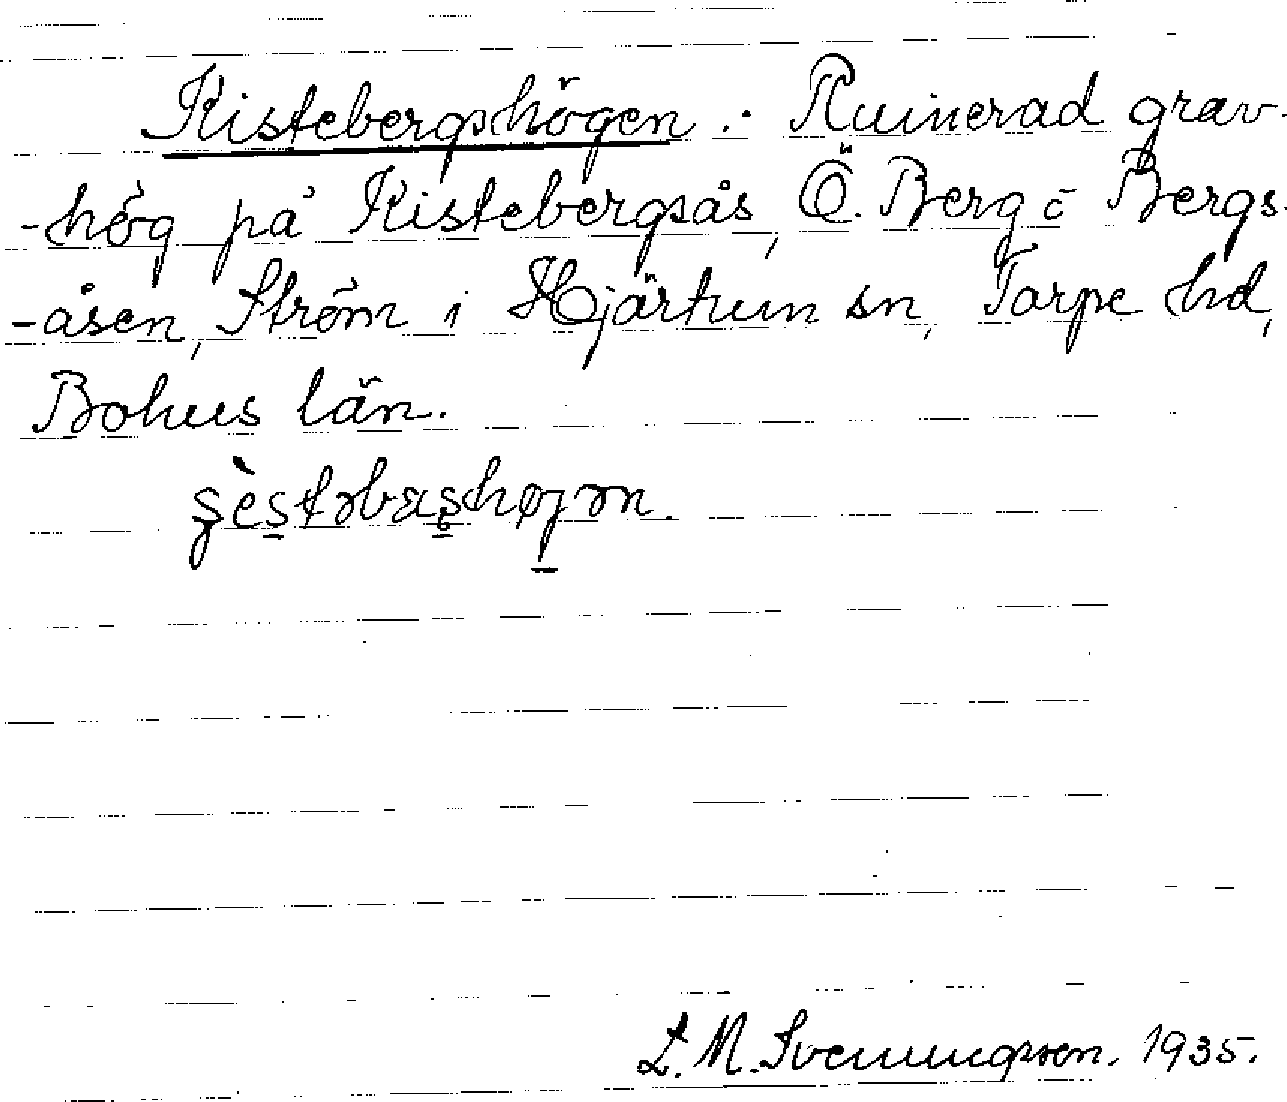 Kistebergshögen. Ruinerad grav-
-hög på Kistebergsås, Ö. Berg o Bergs-
-åsen, Ström i Hjärtum sn, Torpe hd,
Bohus län.
L. M. Svenungsson. 1935.